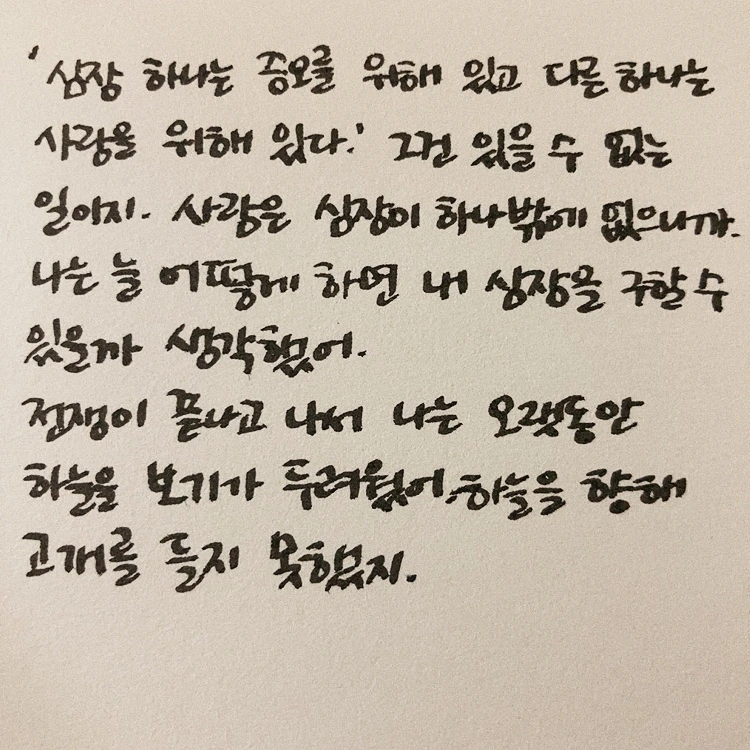 '심장 하나는 증오를 위해 있고 다른 하나는
사랑을 위해 있다.' 그건 있을 수 없는
일이지. 사람은 심장이 하나밖에 없으니까.
나는 늘 어떻게 하면 내 심장을 구할 수
있을까 생각했어.
전쟁이 끝나고 나서 나는 오랫동안
하늘을 보기가 두려웠어, 하늘을 향해
고개를 들지 못했지.